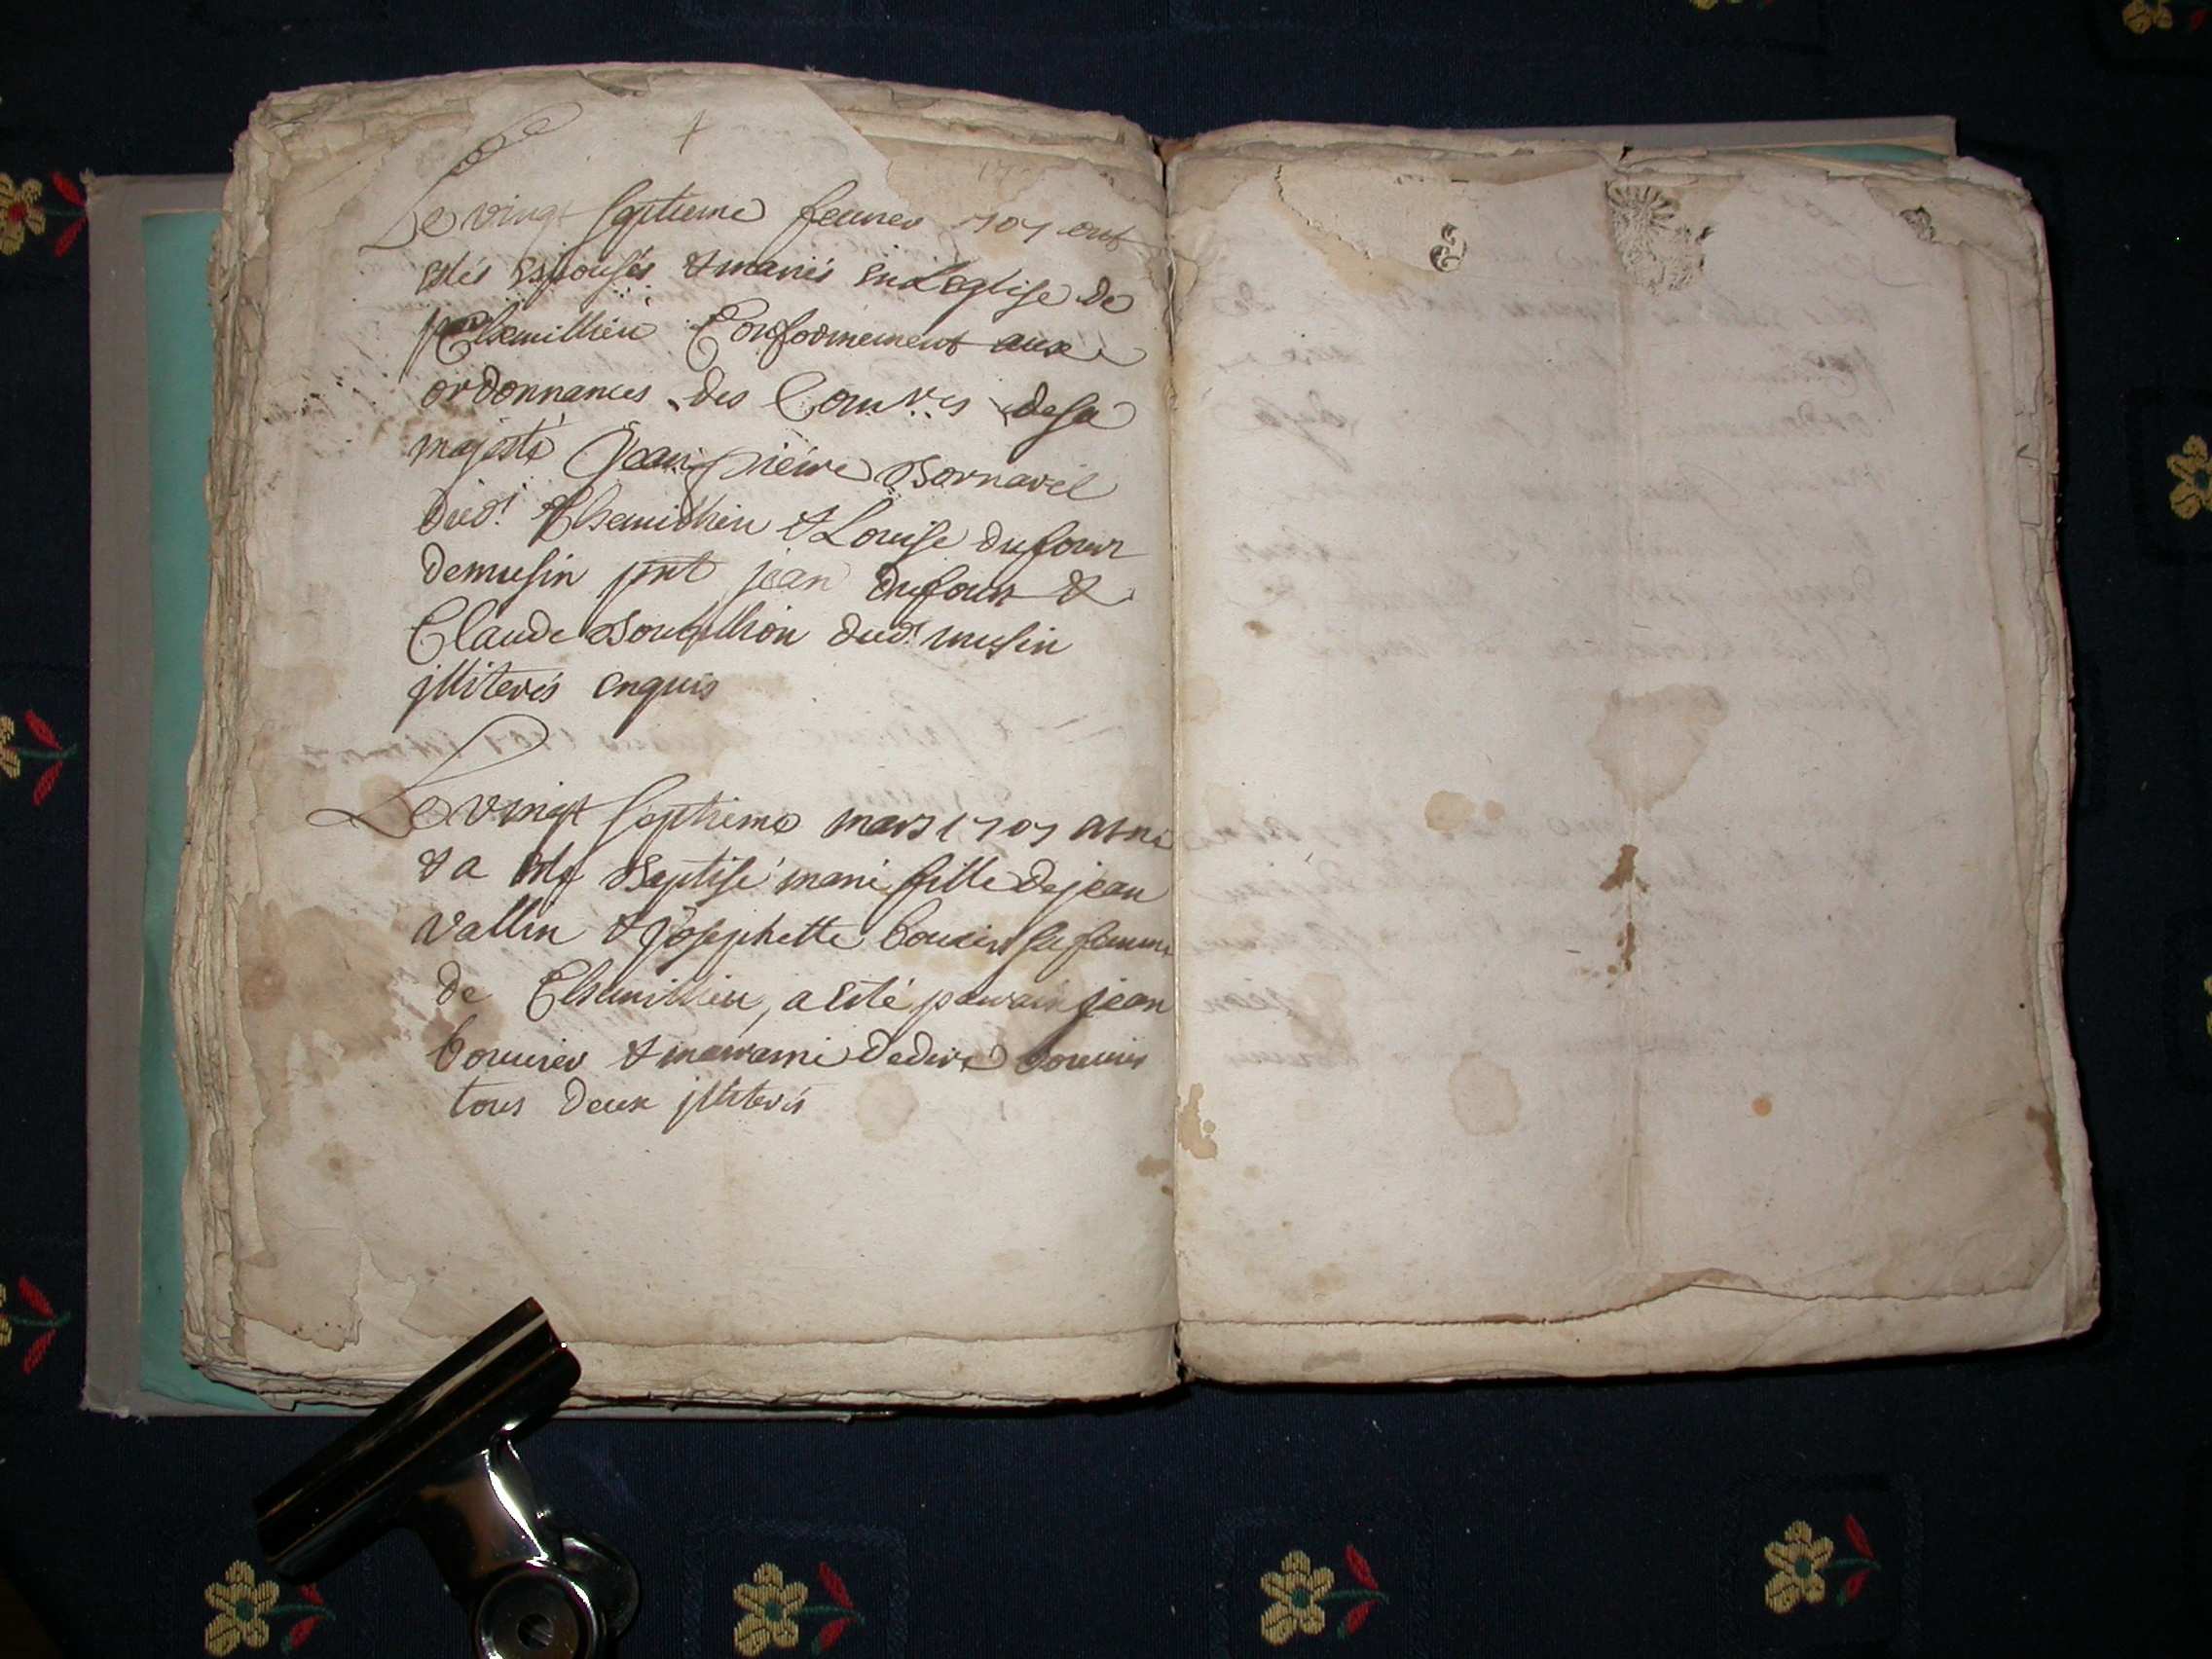 Le vingt septieme feurier 1707 ont
estés espousés & mariés en L'eglise de
Chemillieu Conformement aux
ordonnances des desa
majesté Jean pierre Bornarel
dud.t Chemillieu & Louise dufour
demusin pnt jean dufour &
Claude dud.t musin
jlliterés enquis
Le vingt septieme mars 1707 est né
& a esté Baptisé marie fille de jean
vallin & Josephette sa femme
de Chemillieu, a esté parrain jean
& marraine
tous deux jlliterés